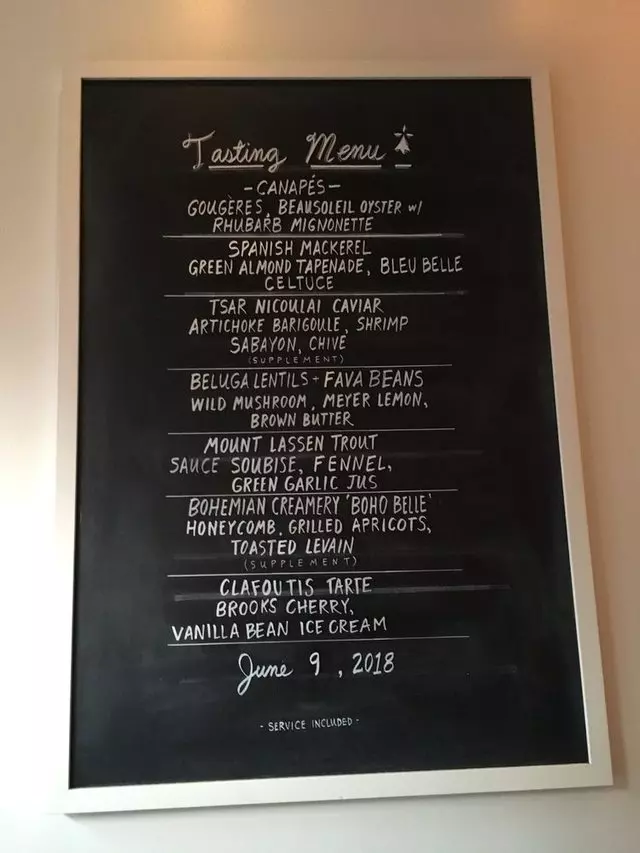 Tasting Menu
-CANAPÉS-
GOUGÈRES, BEAUSOLEIL OYSTER w/
RHUBARB MIGNONETTE
SPANISH MACKEREL
GREEN ALMOND TAPENADE, BLEU BELLE
CELTUCE
TSAR NICOULAI CAVIAR
ARTICHOKE BARIGOULE, SHRIMP
SABAYON, CHIVE
(SUPPLEMENT)
BELUGA LENTILS + FAVA BEANS
WILD MUSHROOM, MEYER LEMON,
BROWN BUTTER
MOUNT LASSEN TROUT
SAUCE SOUBISE, FENNEL,
GREEN GARLIC JUS
BOHEMIAN CREAMERY 'BOHO BELLE'
HONEYCOMB, GRILLED APRICOTS,
TOASTED LEVAIN
(SUPPLEMENT)
CLAFOUTIS TARTE
BROOKS CHERRY,
VANILLA BEAN ICE CREAM
June 9, 2018
- SERVICE INCLUDED -